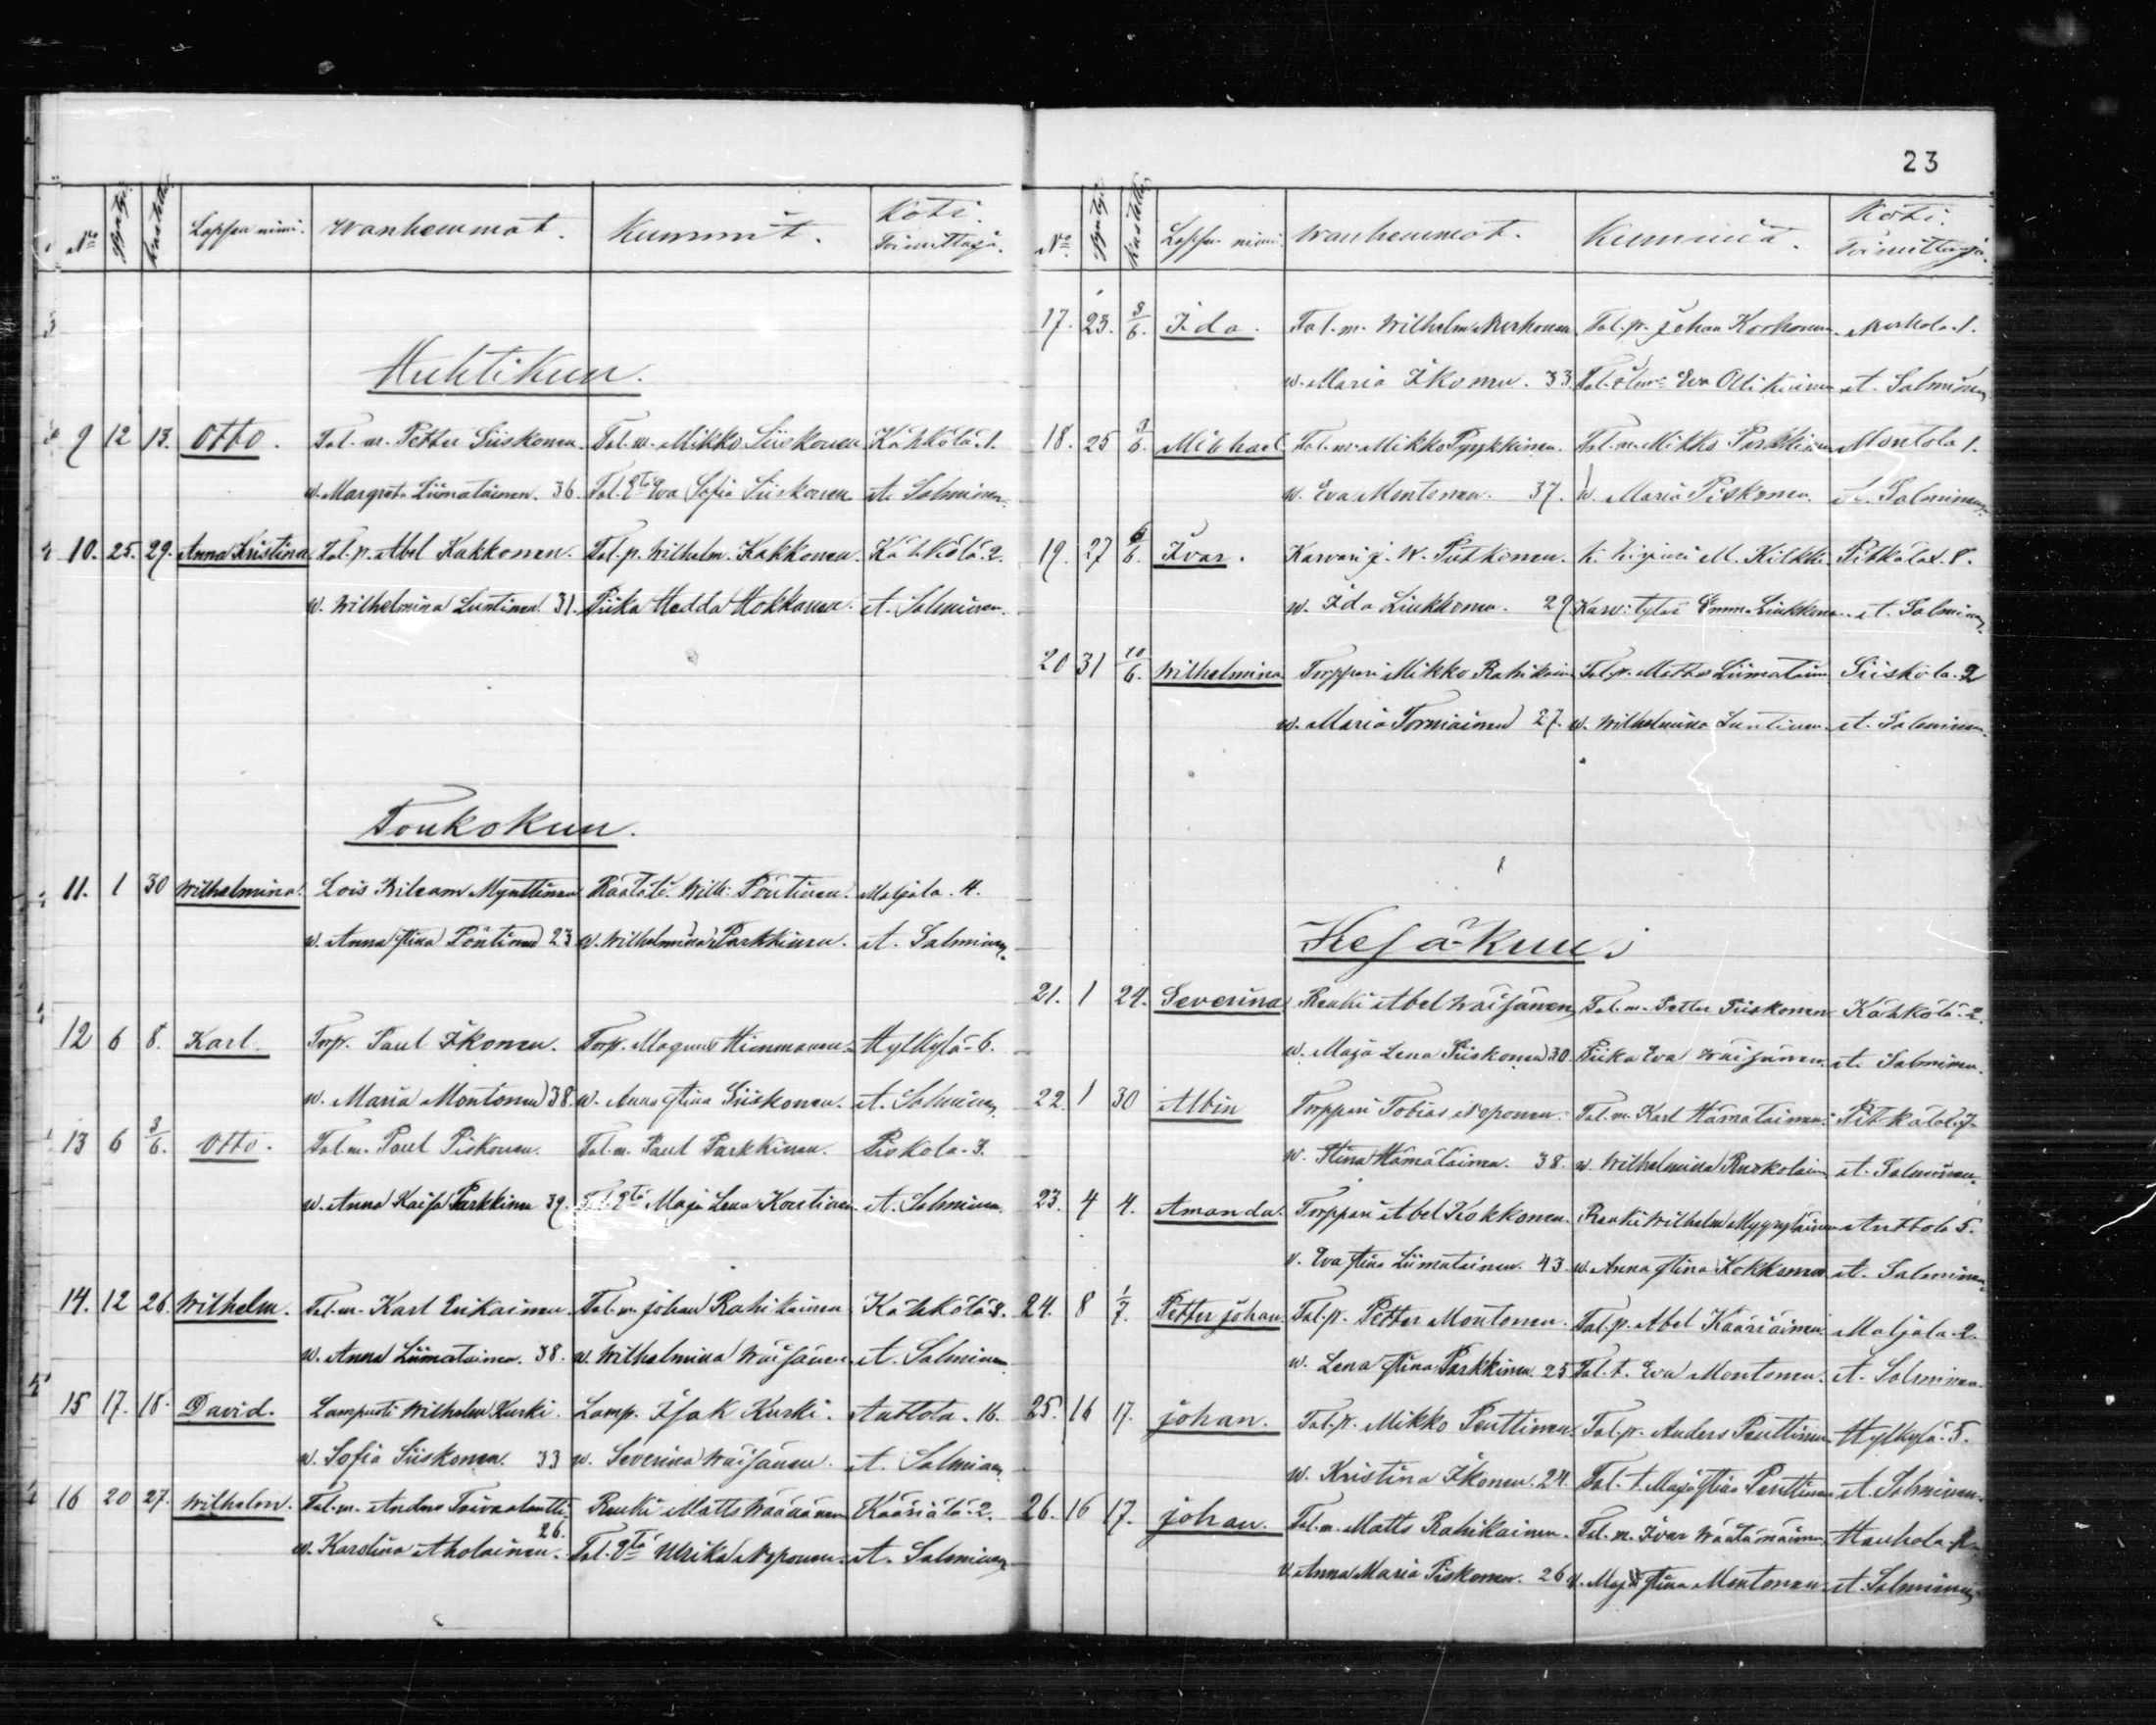 23
No Syntyi. Kastettu. Lapsen nimi. Wanhemmat. Kummit. Koti. Toimittaja.
Huhtikuu.
9 12 13. Otto. Tal. m. Petter Siiskonen. Tal. m. Mikko Siiskonen Kähkölä. 1.
w. Margreta Liimatainen. 36. Tal. Eva Sofia Siiskonen A. Salminen.
10. 25. 29. Anna Kristina. Tal. p. Abel Kakkonen. Tal. p. Wilhelm. Kakkonen. Kähkölä. 2.
w. Wilhelmina Luntinen. 31. Piika Hedda Hokkanen. A. Salminen.
Toukokuu.
11. 1 30 Wilhelmina. Lois Mynttinen Räätäli. Wilh: Pöntinen. Maljala. 4.
w. Anna Stina Pöntinen 23 w. Wilhelmina Parkkinen. A. Salminen.
12 6 8. Karl. Torp. Paul Ikonen. Torp. Magnus Himmanen. Hylkylä 6.
w. Maria Montonen 38. w. Anna Stina Siiskonen. A. Salminen.
13 6 3/6. Otto. Tal. m. Paul Piskonen. Tal. m. Paul Parkkinen. Piskola. 3.
w. Anna Kaisa Parkkinen 39. Tal. Maja Lena A. Salminen.
14. 12 26. Wilhelm. Tal. m. Karl Erikainen. Tal. m. Johan Rahikainen Kähkölä 8.
w. Anna Liimatainen. 38. w. Wilhelmina Wäisänen. A. Salminen
15 17. 18. David. Lampuoti Wilhelm Kurki. Lamp. Isak Kurki. Anttola. 16.
w. Sofia Siiskonen. 33 w. Severina Wäisänen. A. Salminen
16 20 27. Wilhelm. Tal. m. Anders Renki Matts Wäänänen Kääriälä. 2.
w. Karolina Aholainen. 26. Tal. Ulrika Noponen. A. Salminen
No Syntyi. Kastettu. Lapsen nimi. Wanhemmat. Kummit. Koti. Toimittaja.
17. 23. 3/6. Ida. Tal. m. Wilhelm Norhonen Tal. p. Johan Korhonen. Norhola. 1.
w. Maria Ikonen. 33. Tal. Eva Ollikainen A. Salminen
18. 25 3/6. Michael Tal. m. Mikko Pyykkinen. Tal. m. Mikko Parkkinen Montola 1.
w. Eva Montonen. 37. w. Maria Piskonen. A. Salminen.
19. 27 6/6. Ivar. Karvari j. W. Putkonen. M. Kilkki Pitkälax. 8.
w. Ida Liukkonen. 29. Karv: tytär Emma Liukkonen. A. Salminen.
20 31 10/6. Wilhelmina Torppari Mikko Rahikainen Tal. p. Matts Liimatainen Siiskola. 2
w. Maria Torniainen 27. w. Wilhelmina Luntinen. A. Salminen.
Kesäkuu.
21. 1 24. Severina Renki Abel Wäisänen Tal. m. Petter Piiskonen Kähkölä. 2.
w. Maja Lena Siiskonen 30. Piika Eva Wäisänen. A. Salminen.
22. 1 30 Albin Torppari Tobias Noponen. Tal. m. Karl Hämäläinen. Pitkälax. 7.
w. Stina Hämäläinen. 38. w. Wilhelmina Ruokolainen A. Salminen.
23. 4 4. Amanda. Torppari Abel Kokkonen. Renki Wilhelm Myyryläinen Anttola 5.
v. Eva Stina Liimatainen. 43. w. Anna Stina Kokkonen A. Salminen.
24. 8 1/7. Petter Johan. Tal. p. Petter Montonen. Tal. p. Abel Kääriäinen. Maljala. 2.
w. Lena Stina Parkkinen. 25 Tal. t. Eva Montonen. A. Salminen.
25. 16 17. Johan. Tal. p. Mikko Penttinen. Tal. p. Anders Penttinen Hylkylä. 5.
w. Kristina Ikonen. 24. Tal. t. Maja Stina Penttinen A. Salminen.
26. 16 17. Johan. Tal. m. Matts Rahikainen. Tal. m. Ivar Wäätämäinen. Haukola. 2
v. Anna Maria Piskonen. 26 v. Maja Stina Montonen. A. Salminen.